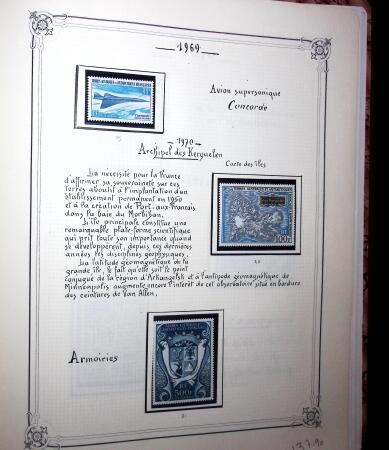 1969
Avion supersonique
Concorde
1970
Archipel des Kerguelen
Carte des îles
La nécessité pour la France
d'affirmer sa souveraineté sur ces
terres aboutit à l'implantation d'un
établissement permanent en 1950
et à la création de Port-aux-Français
dans la baie du Morbihan.
L'île principale constitue une
remarquable plate-forme scientifique
qui prit toute son importance quand
se développèrent, depuis ces dernières
années les disciplines géophysiques.
La latitude géomagnétique de la
grande île, le fait qu'elle soit le point
conjugué de la région d'Arhangelsk et à l'antipode géomagnétique de
Minneapolis augmente encore l'intérêt de cet observatoire situé en bordure
des ceintures de Van Allen.
100F
Armoiries
500F
137.90